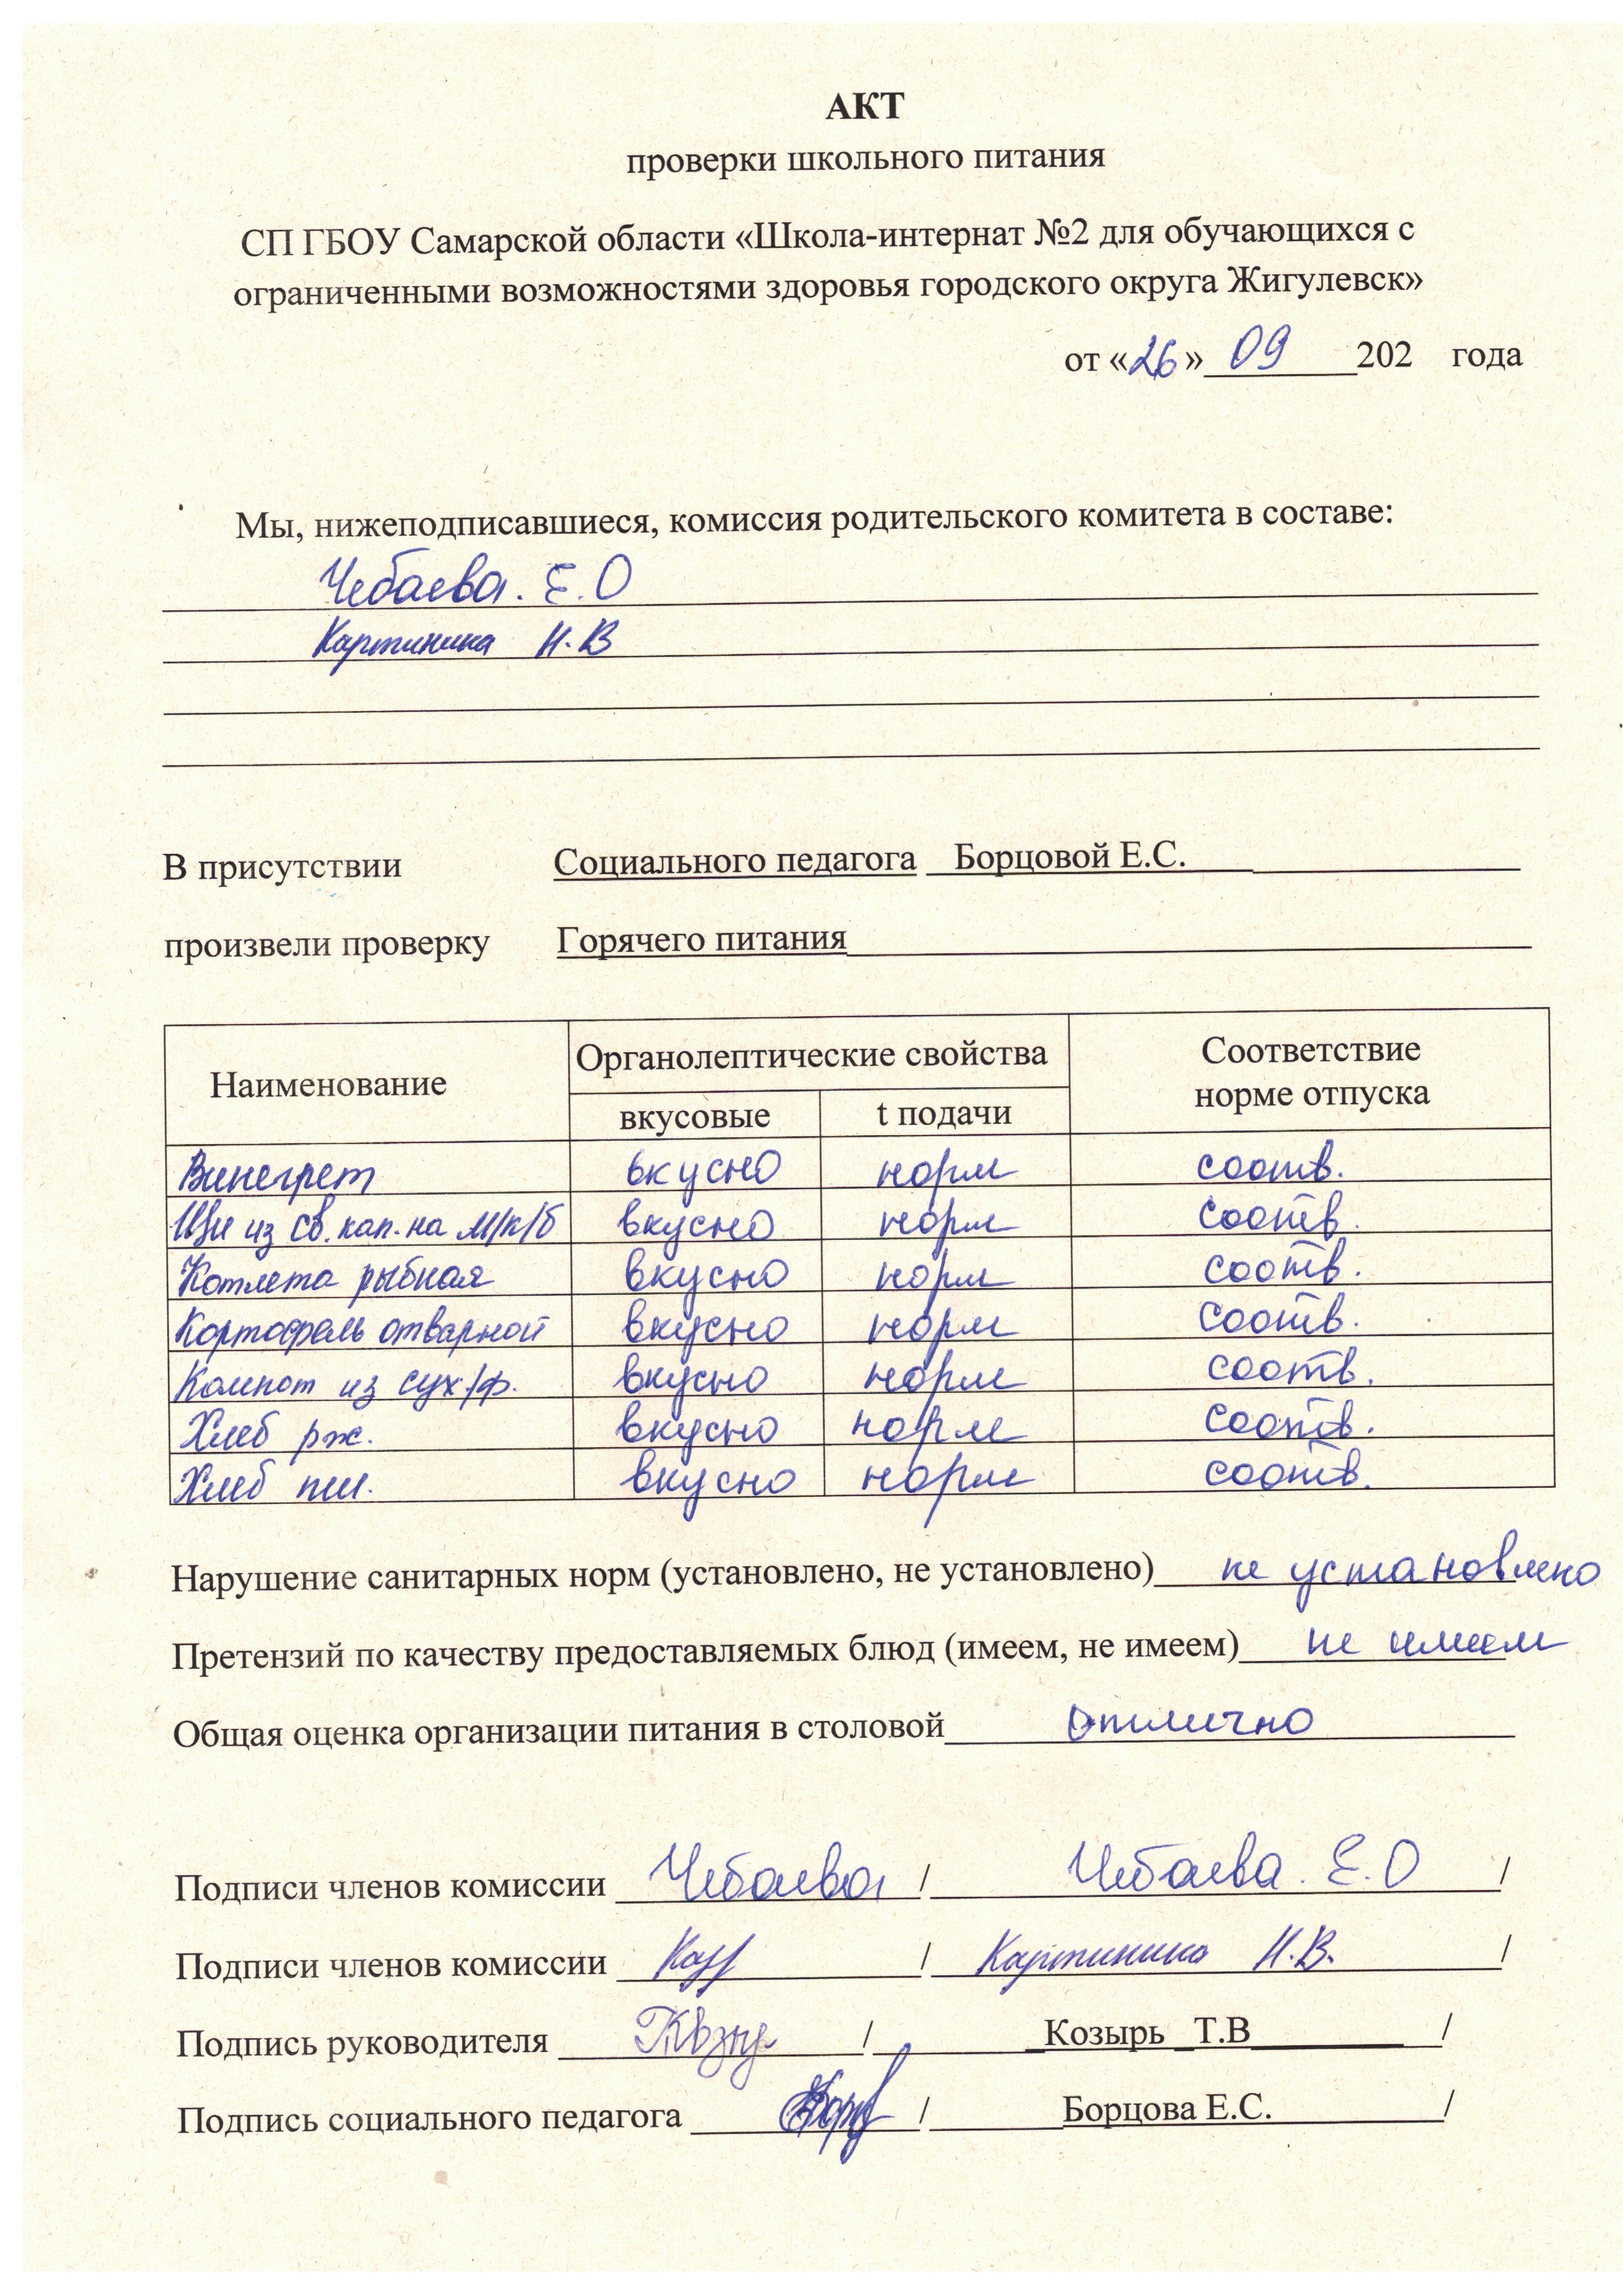 АКТ
проверки школьного питания
СП ГБОУ Самарской области «Школа-интернат №2 для обучающихся с
ограниченными возможностями здоровья городского округа Жигулевск»
от «26» 09 202 года
Мы, нижеподписавшиеся, комиссия родительского комитета в составе:
Чебаева. Е.О
Картинина Н.В
В присутствии Социального педагога Борцовой Е.С.
произвели проверку Горячего питания
Наименование Органолептические свойства Соответствие норме отпуска
вкусовые t подачи
Винегрет вкусно норм соотв.
Щи из св. кап. на м/к/б вкусно норм соотв.
Котлета рыбная вкусно норм соотв.
Кортофель отварной вкусно норм соотв.
Компот из сух./ф. вкусно норм соотв.
Хлеб рж. вкусно норм соотв.
Хлеб пш. вкусно норм соотв.
Нарушение санитарных норм (установлено, не установлено) не установлено
Претензий по качеству предоставляемых блюд (имеем, не имеем) не имеем
Общая оценка организации питания в столовой отлично
Подписи членов комиссии Чебаева / Чебаева. Е.О /
Подписи членов комиссии / Картинина Н.В. /
Подпись руководителя / Козырь Т.В /
Подпись социального педагога / Борцова Е.С. /